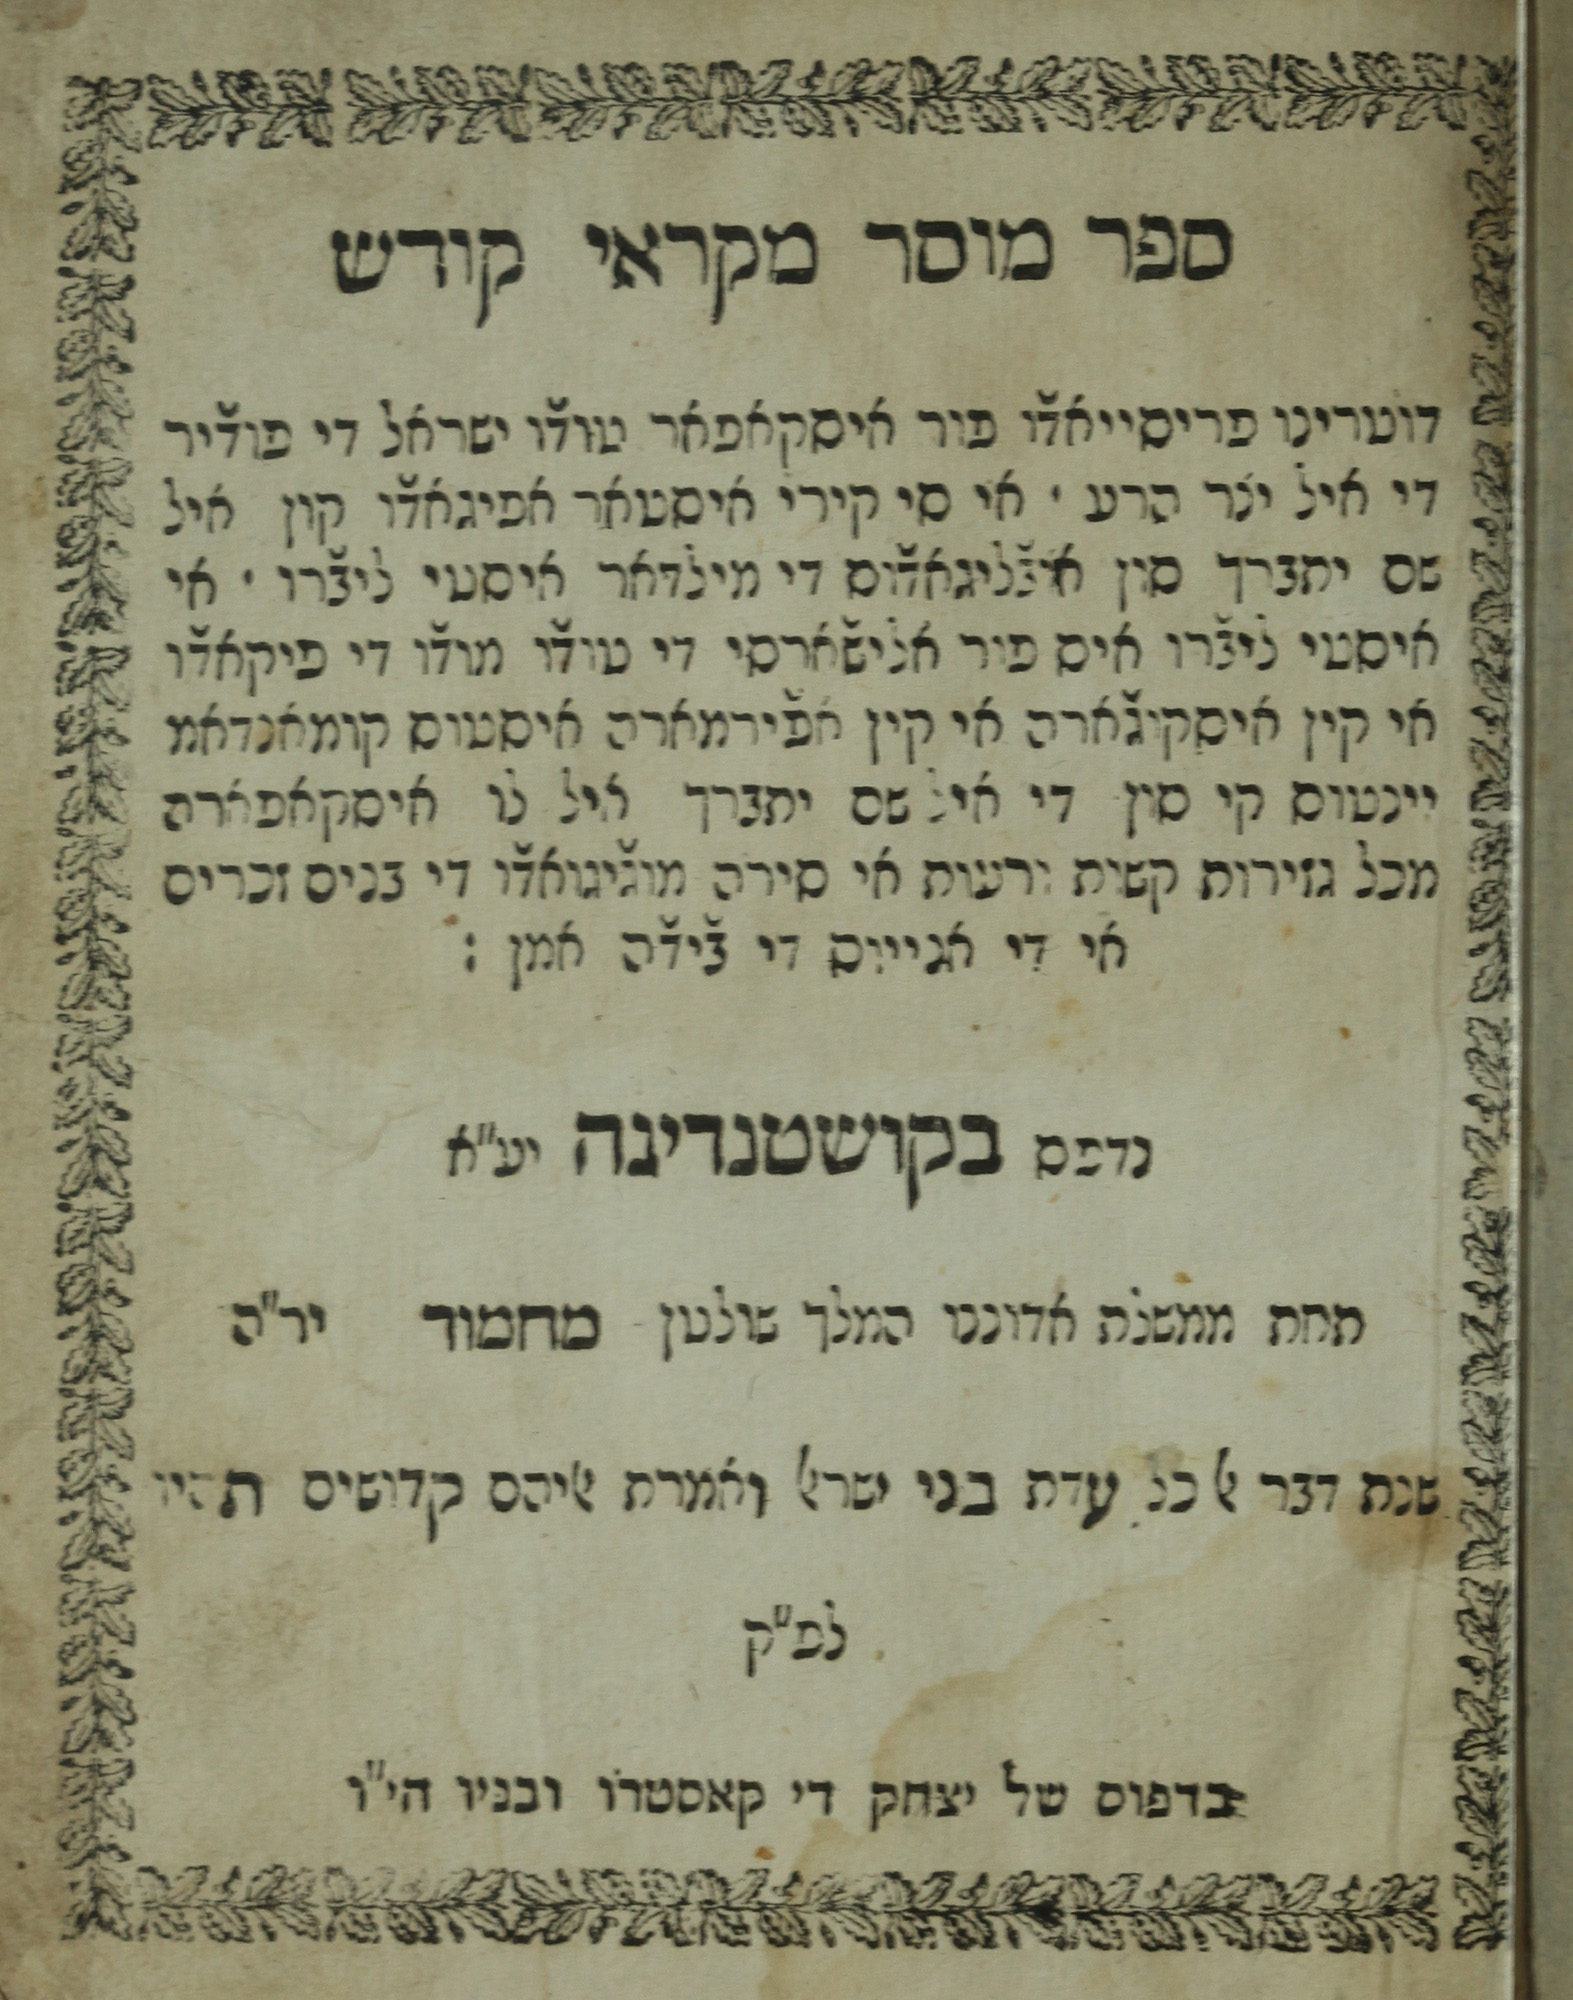 ספר מוסר מקראי קודש
דוטרינו פריסייאד̆ו פור איסקאפאר טוד̆ו ישראל די פוד̆יר
די איל יצר הרע ׳ אי סי קירי איסטאר אפיגאד̆ו קון איל
שם יתברך סון אוב̆ליגאד̆וס די מילדאר איסטי ליב̆רו ׳ אי
איסטי ליב̆רו איס פור אליש̆ארסי די טוד̆ו מוד̆ו די פיקאד̆ו
אי קין איסקוג̆ארה אי קין אפ̆ירמארה איסטוס קומאנדאמ
יינטוס קי סון די איל שם יתברך איל לו איסקאפארה
מכל גזירות קשות ורעות אי סירה מוג̆יגואד̆ו די בנים זכרים
אי די אנייוס די ב̆יד̆ה אמן :
נדפס בקושטנדינה יע״א
תחת ממשלת אדוננו המלך שולטן מחמוד יר״ה
שנת דבר אל כל עדת בני ישראל ואמרת אליהם קדושים תהיו
לפ״ק
בדפוס של יצחק די קאסטרו ובניו הי״ו